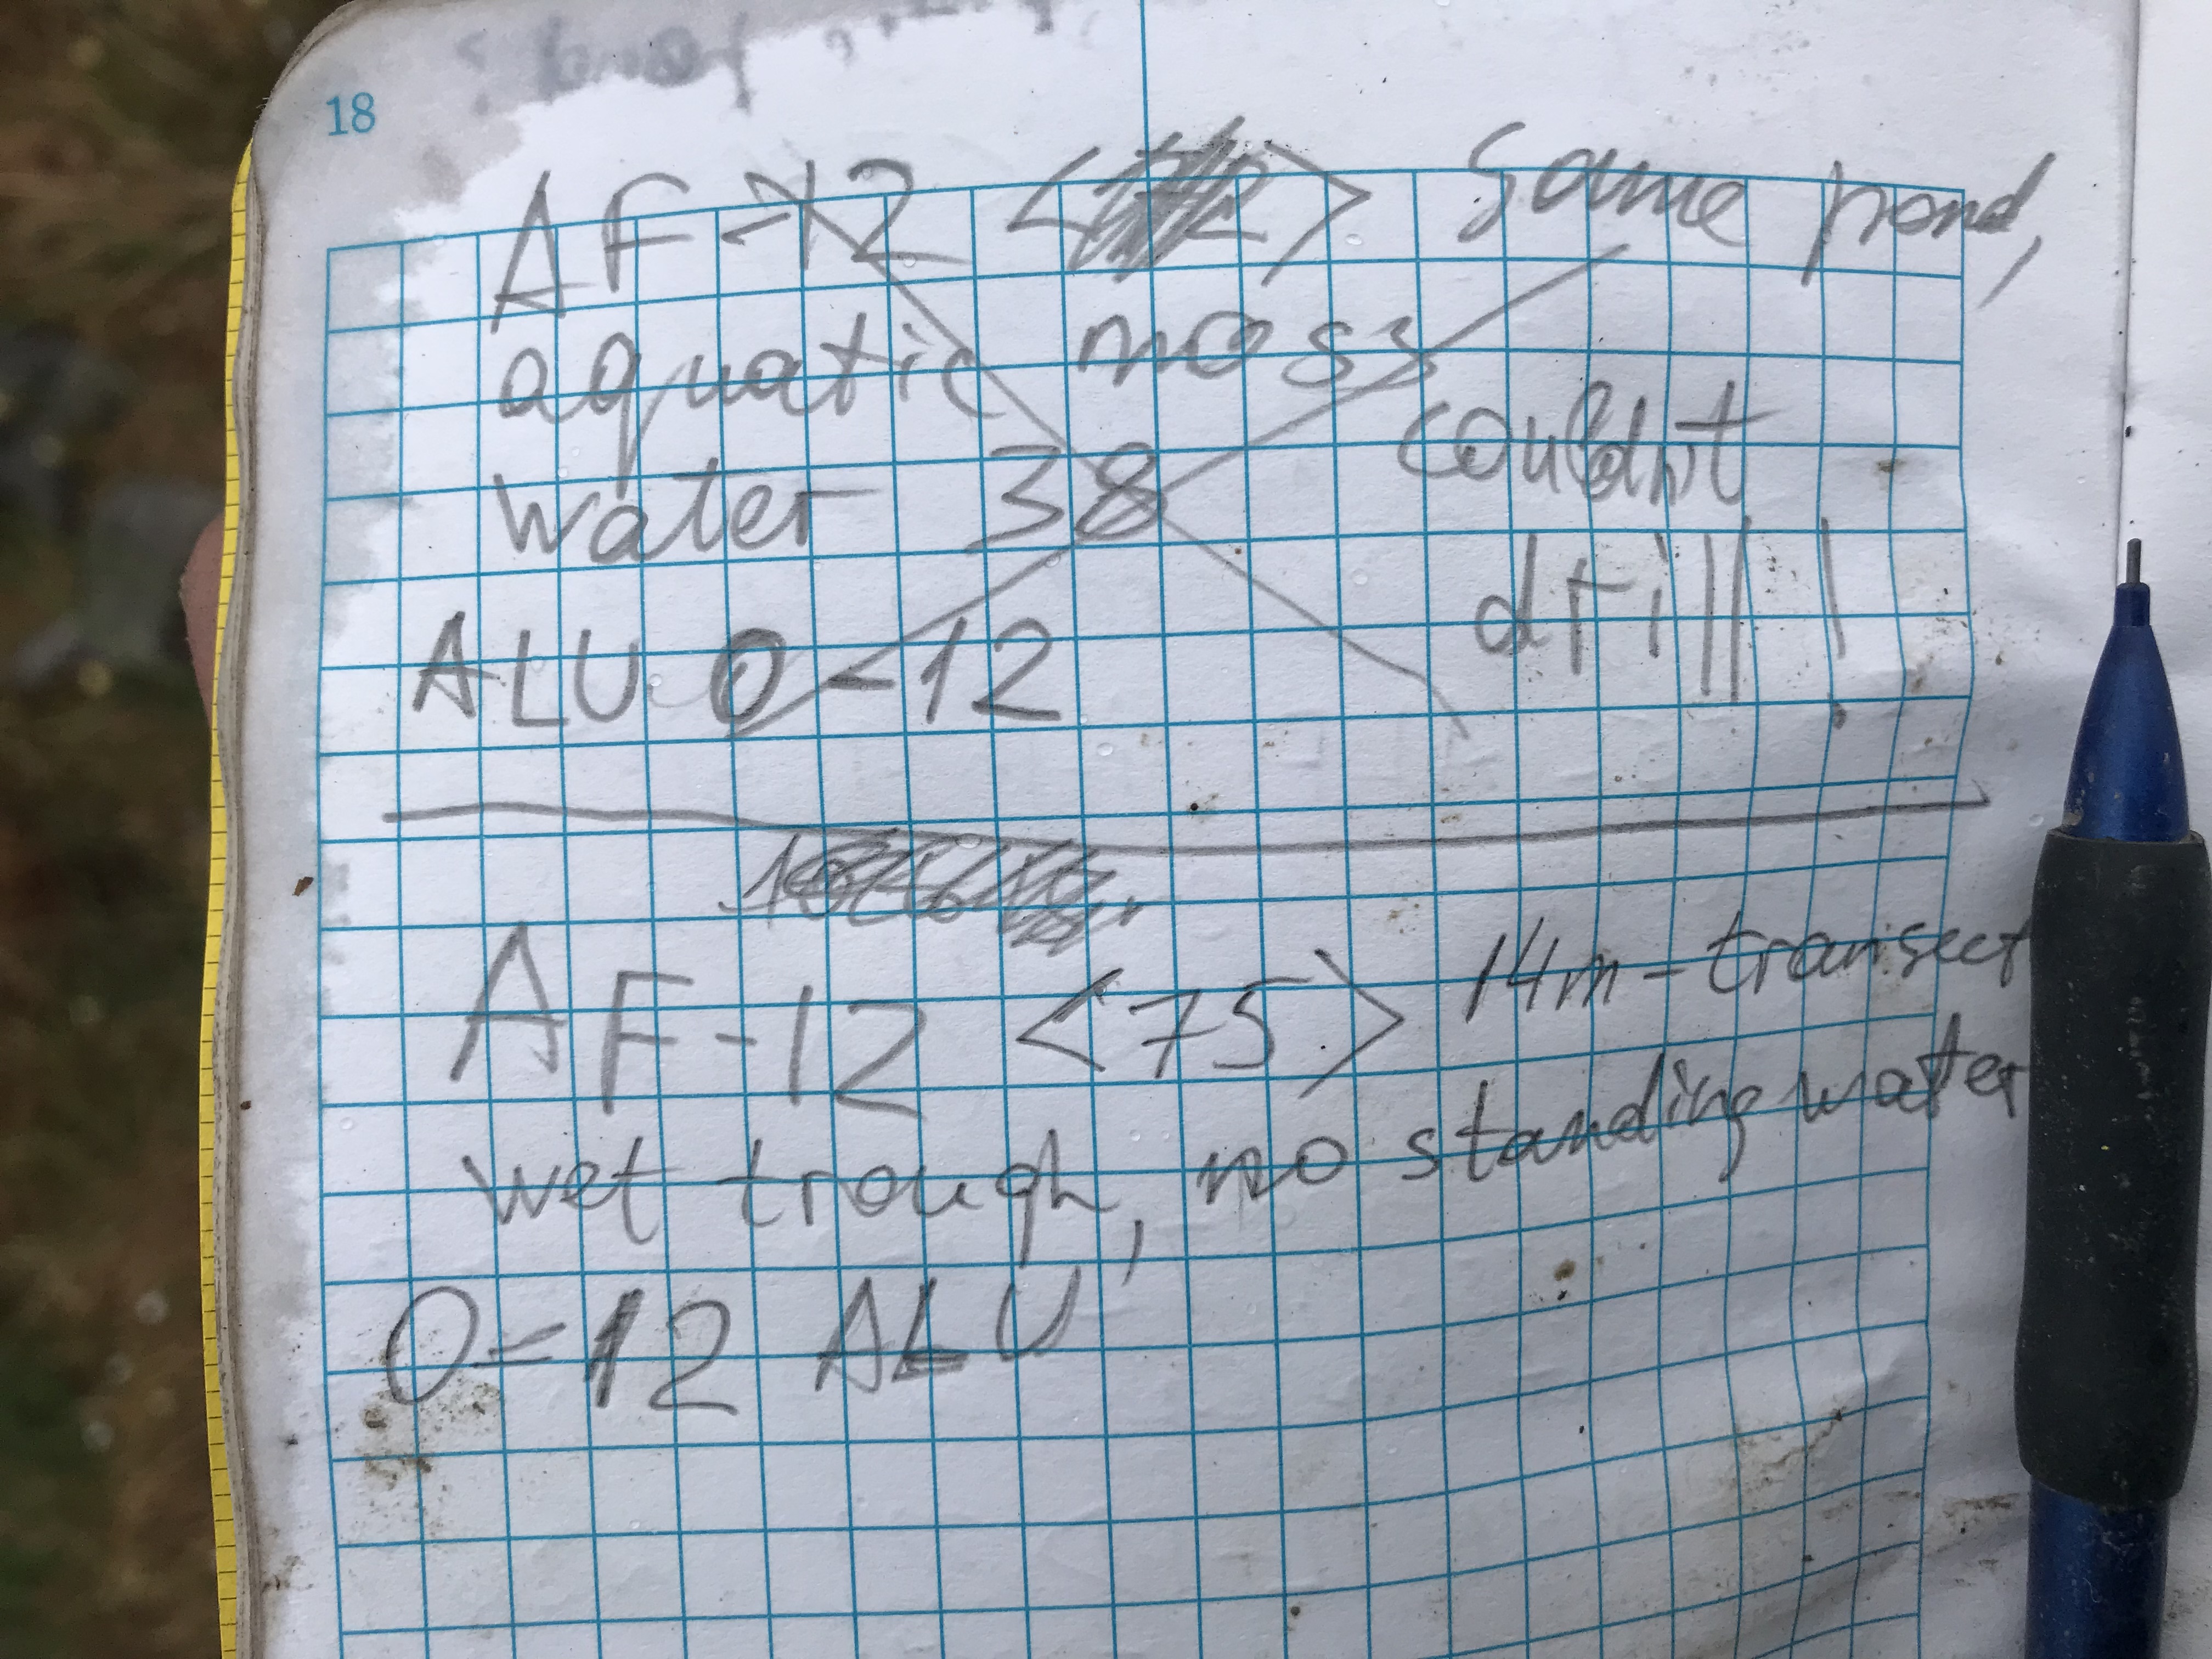 18
AF-12 < > Same pond,
aquatic moss
water 38 couldn't
drill!
ALU 0-12
AF-12 <75> 14m-transect
wet trough, no standing water
0-12 ALU